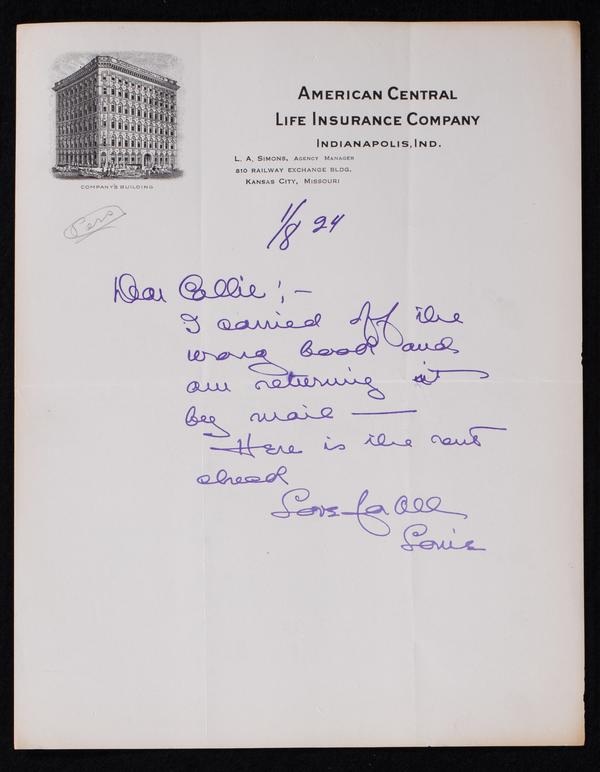 AMERICAN CENTRAL
LIFE INSURANCE COMPANY
INDIANAPOLIS, IND.
L. A. SIMONS, AGENCY MANAGER
810 RAILWAY EXCHANGE BLDG.
KANSAS CITY, MISSOURI
COMPANY'S BUILDING
Pers
1/8 24
Dear Callie;—
I carried off the
wrong book and
am returning it
by mail —
Here is the rent
check
Love for All
Louis